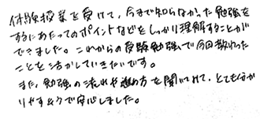 体験授業を受けて、今まで知らなかった勉強を
するにあたってのポイントなどをしっかり理解することが
できました。これからの受験勉強で今回教わった
ことを活かしていきたいです。
また、勉強の流れや進め方を聞いてみて、とても分か
りやすくて安心しました。